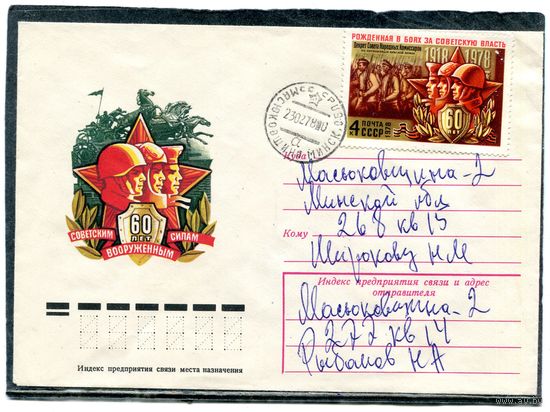 РОЖДЕННАЯ В БОЯХ ЗА СОВЕТСКУЮ ВЛАСТЬ
Декрет Совета Народных Комиссаров
1918 1978
60
4 К ПОЧТА СССР 1978
МИНСК
Куда
Масюковщина-2
Минской обл
268 кв 13
Кому
Широкову НМ
60 ЛЕТ
СОВЕТСКИМ ВООРУЖЕННЫМ СИЛАМ
Индекс предприятия связи и адрес
отправителя
Масюковщина-2
272 кв 14
Рыбаков НА
Индекс предприятия связи места назначения